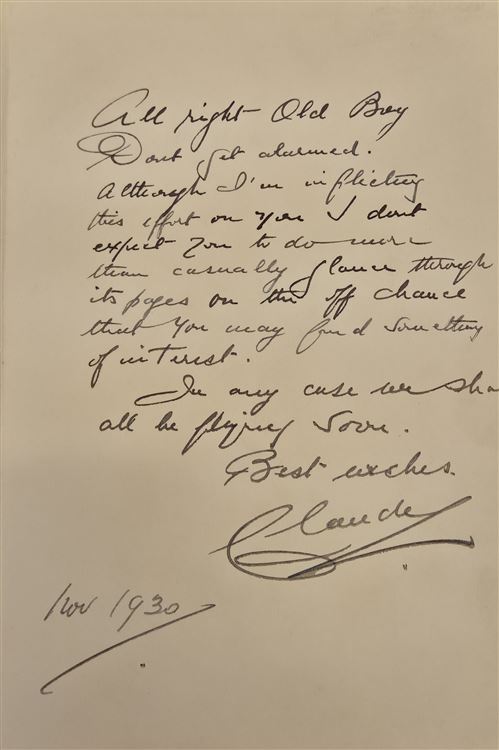 All right Old Boy
Dont get alarmed.
Although I'm inflicting
this effort on you I dont
expect you to do more
than casually glance through
its pages on the off chance
that you may find something
of interest.
In any case we sha
all be flying soon.
Best wishes.
Claude
Nov 1930